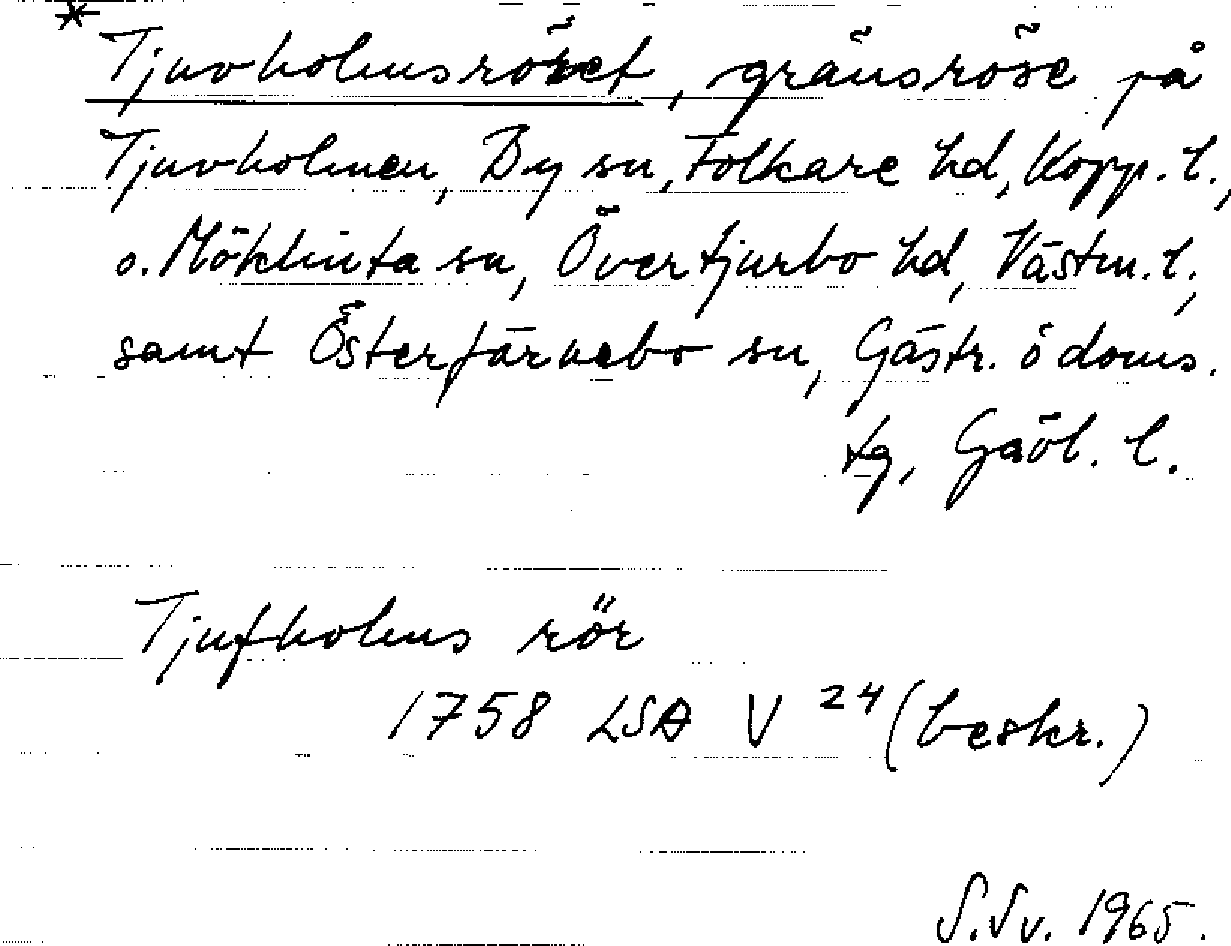 * Tjuvholmsröset, gränsröse på
Tjuvholmen, By sn, Folkare hd, Kopp. l.,
o. Möklinta sn, Övertjurbo hd, Västm. l.,
samt Österfärnebo sn, Gästr. ö doms.
tg, Gävl. l.
Tjufholms rör
1758 LSA V 24 (beskr.)
S.Sv. 1965.